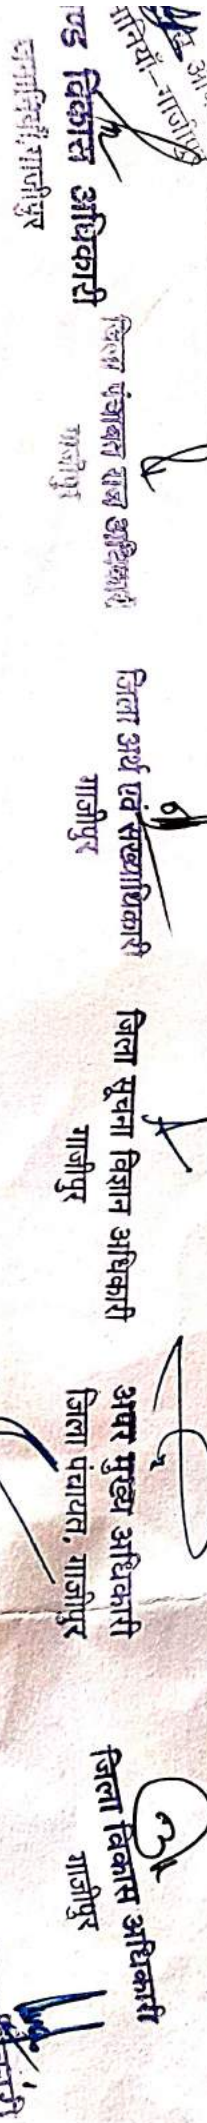 मानियाँ-गाजीपुर
विकास अधिकारी
जमानियाँ, गाजीपुर
जिला पंचायत राज अधिकारी
गाजीपुर
जिला अर्थ एवं संख्याधिकारी
गाजीपुर
जिला सूचना विज्ञान अधिकारी
गाजीपुर
अपर मुख्य अधिकारी
जिला पंचायत, गाजीपुर
जिला विकास अधिकारी
गाजीपुर